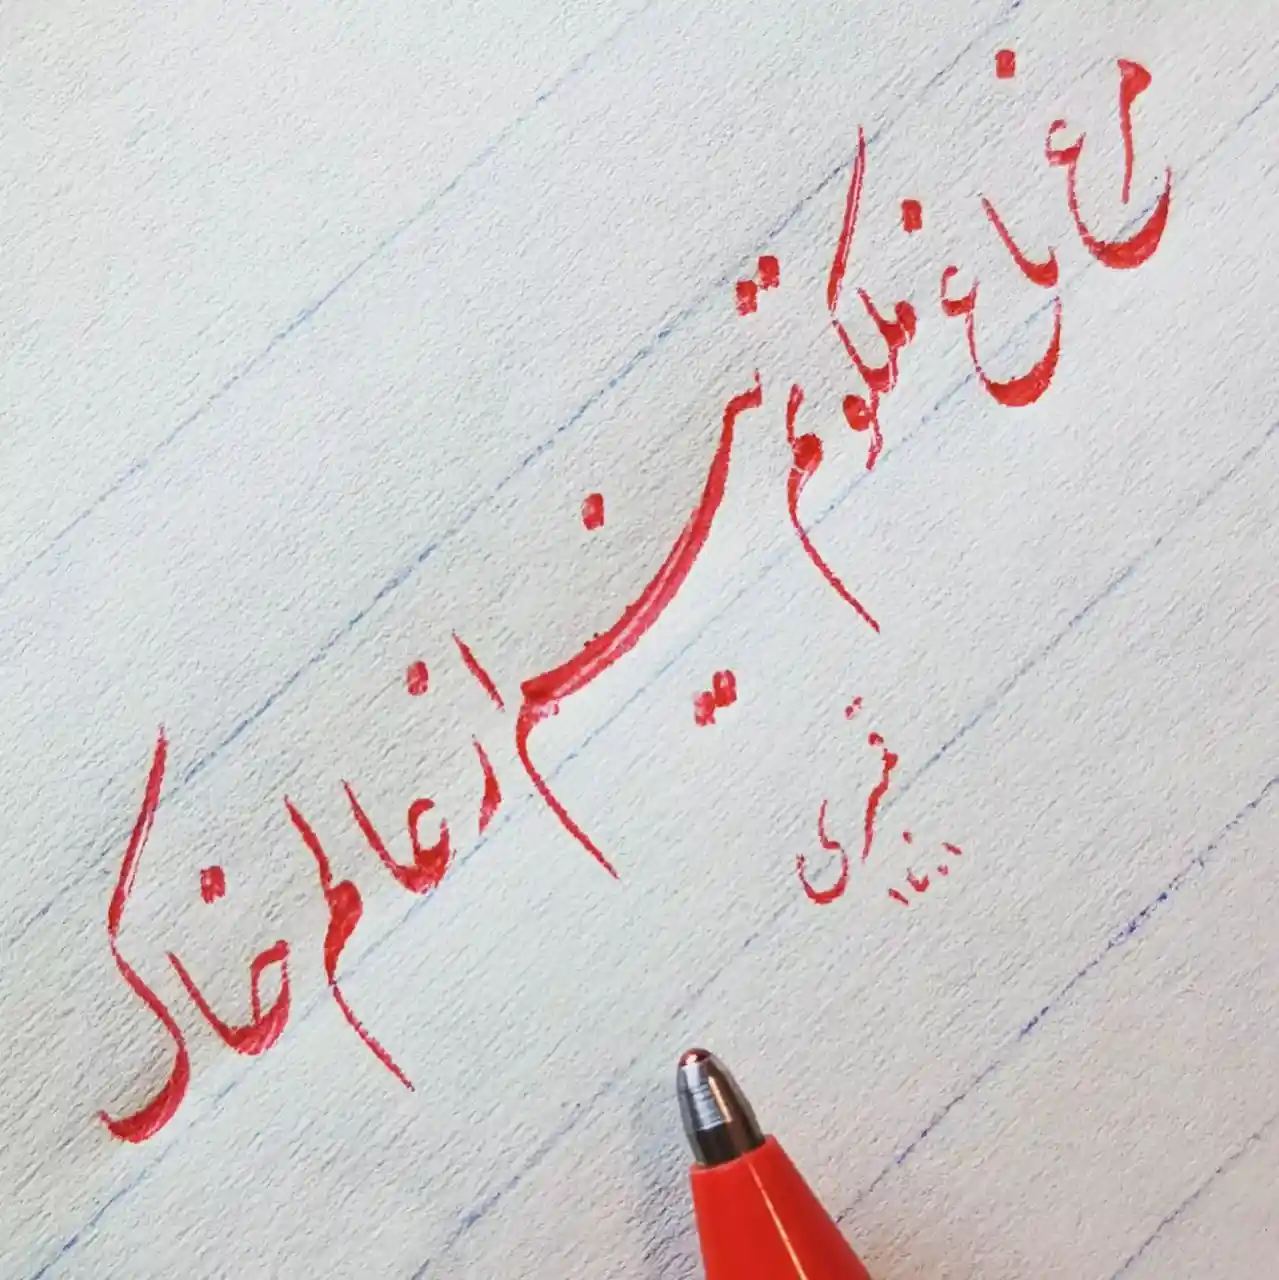 مرغ باغ ملکوتم نیم از عالم خاک
۱۴۰۱